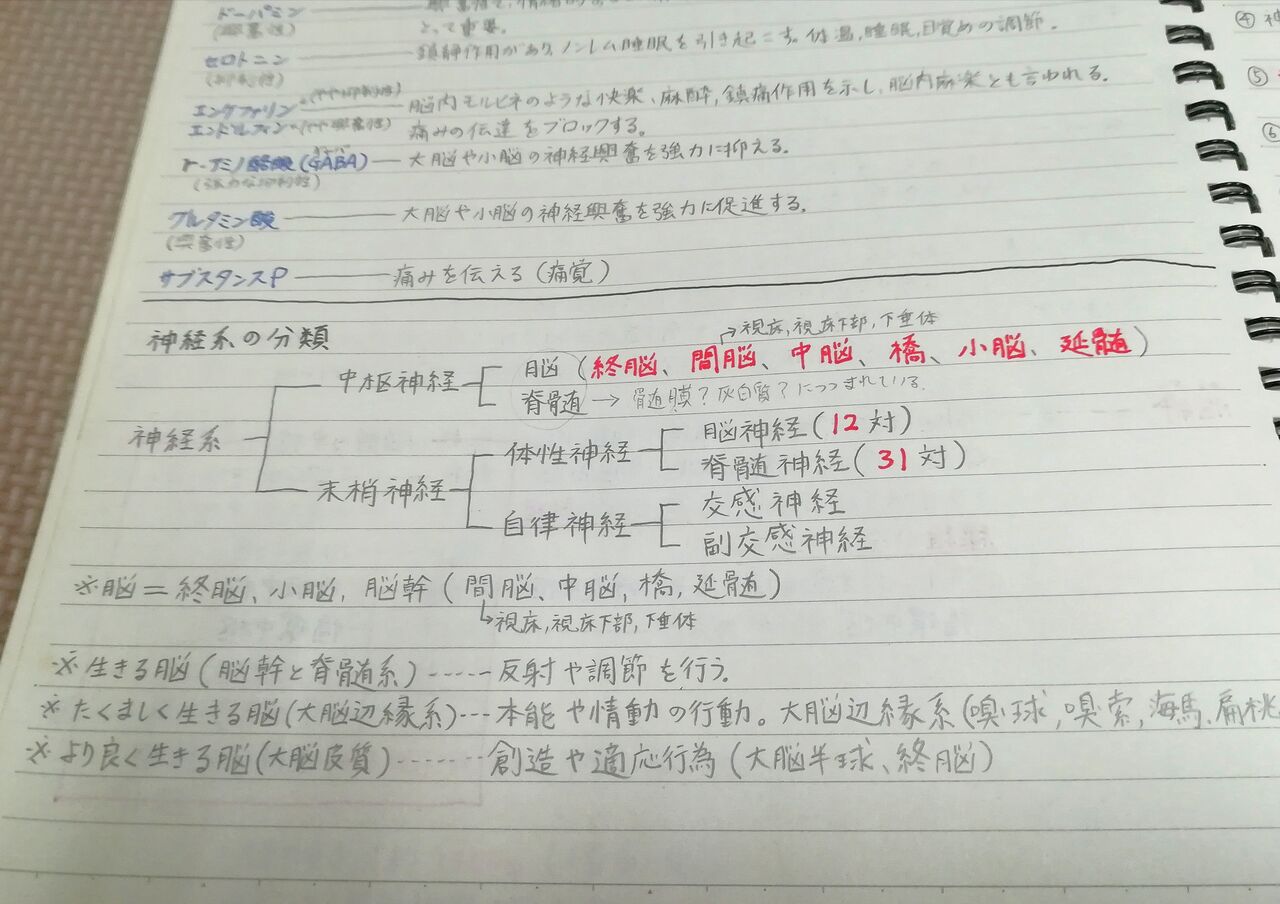 ドーパミン
とって重要。
(興奮性)
セロトニン ――― 鎮静作用があり、ノンレム睡眠を引き起こす。体温,睡眠,目覚めの調節。
(抑制性)
エンケファリン 脳内モルヒネのような快楽、麻酔,鎮痛作用を示し、脳内麻薬とも言われる。
エンドルフィン 痛みの伝達をブロックする。
γ-アミノ酪酸(GABA) ― 大脳や小脳の神経興奮を強力に抑える。
(強力な抑制性)
グルタミン酸 ――― 大脳や小脳の神経興奮を強力に促進する。
(興奮性)
サブスタンスP ――― 痛みを伝える(痛覚)
神経系の分類
→視床,視床下部,下垂体
脳(終脳、間脳、中脳、橋、小脳、延髄)
中枢神経
脊髄 → 骨髄膜?灰白質?につつまれている.
神経系
脳神経(12対)
体性神経
脊髄神経(31対)
末梢神経
交感神経
自律神経
副交感神経
※脳=終脳、小脳,脳幹(間脳、中脳,橋,延髄)
→視床,視床下部,下垂体
※生きる脳(脳幹と脊髄系)-----反射や調節を行う。
※たくましく生きる脳(大脳辺縁系)---本能や情動の行動。大脳辺縁系(嗅球,嗅索,海馬,扁桃
※より良く生きる脳(大脳皮質)-------創造や適応行為(大脳半球、終脳)
④ 神
⑤
⑥